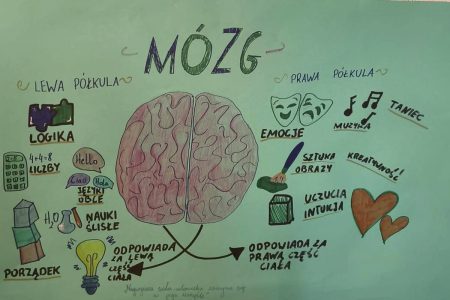 MÓZG
LEWA PÓŁKULA
LOGIKA
4+4=8
LICZBY
Hello
Ciao Hola
JĘZYKI
OBCE
H₂O
NAUKI
ŚCISŁE
PORZĄDEK
ODPOWIADA
ZA LEWĄ
CZĘŚĆ
CIAŁA
PRAWA PÓŁKULA
EMOCJE
MUZYKA
TANIEC
SZTUKA
OBRAZY
KREATYWNOŚĆ!
UCZUCIA
INTUICJA
ODPOWIADA ZA
PRAWĄ CZĘŚĆ
CIAŁA